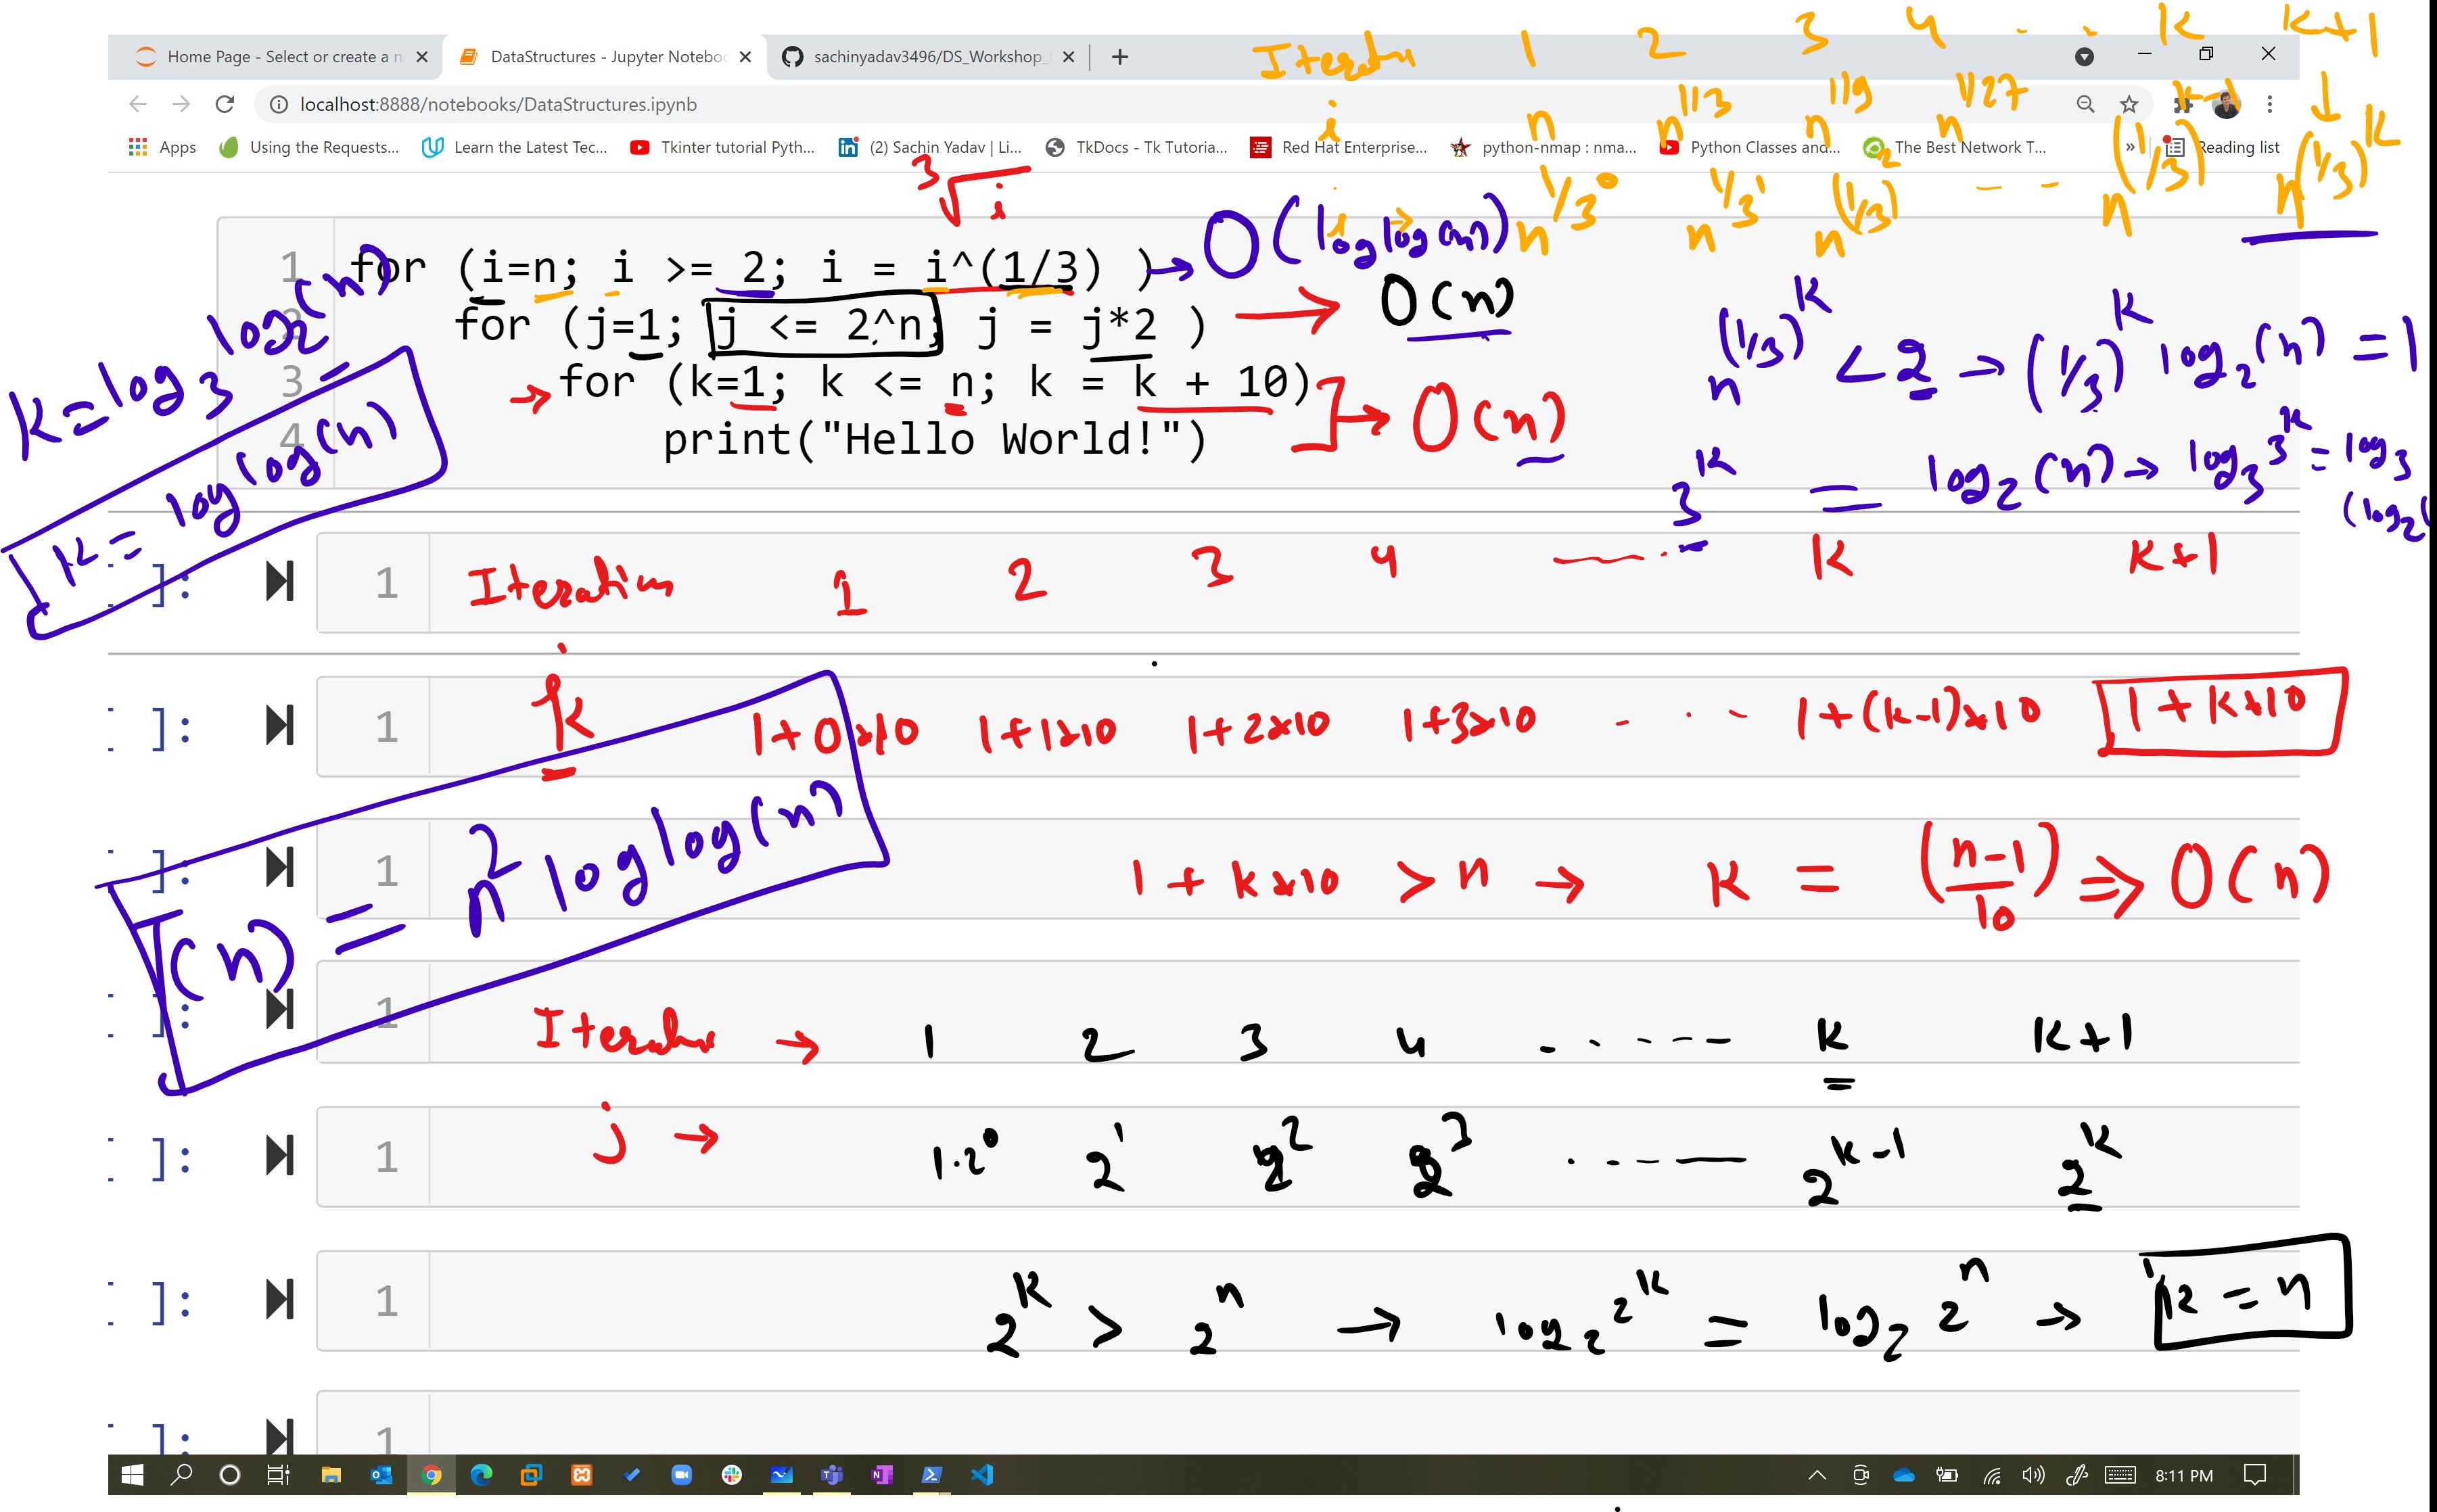 Iteration 1 2 3 4 . . k k+1
Home Page - Select or create a n
DataStructures - Jupyter Noteboo
sachinyadav3496/DS_Workshop_
localhost:8888/notebooks/DataStructures.ipynb
i n n^1/3 n^1/9 n^1/27
Apps Using the Requests... Learn the Latest Tec... Tkinter tutorial Pyth... (2) Sachin Yadav | Li... TkDocs - Tk Tutoria... Red Hat Enterprise... python-nmap : nma... Python Classes and... The Best Network T... » Reading list
i → n^1/3^0 n^1/3^1 n^(1/3)^2 - - n^(1/3)^k-1 n^(1/3)^k
∛i
1 for (i=n; i >= 2; i = i^(1/3) ) → O(log log(n))
2 for (j=1; j <= 2^n; j = j*2 ) → O(n)
3 for (k=1; k <= n; k = k + 10)
4 print("Hello World!")
→ O(n)
n^(1/3)^k < 2 → (1/3)^k log2(n) = 1
3^k = log2(n) → log3 3^k = log3
(log2(
k = log3 log2(n)
k = log log(n)
]: 1 Iteration 1 2 3 4 k k+1
[ ]: 1 k 1+0*10 1+1*10 1+2*10 1+3*10 - . . - 1+(k-1)*10 1+k*10
]: 1 1+k*10 > n → k = (n-1)/10 ⇒ O(n)
T(n) = n^2 log log(n)
]: 1 Iteration → 1 2 3 4 k k+1
]: 1 j → 1.2^0 2^1 2^2 2^3 2^k-1 2^k
]: 1 2^k > 2^n → log2 2^k = log2 2^n → k = n
]: 1
8:11 PM